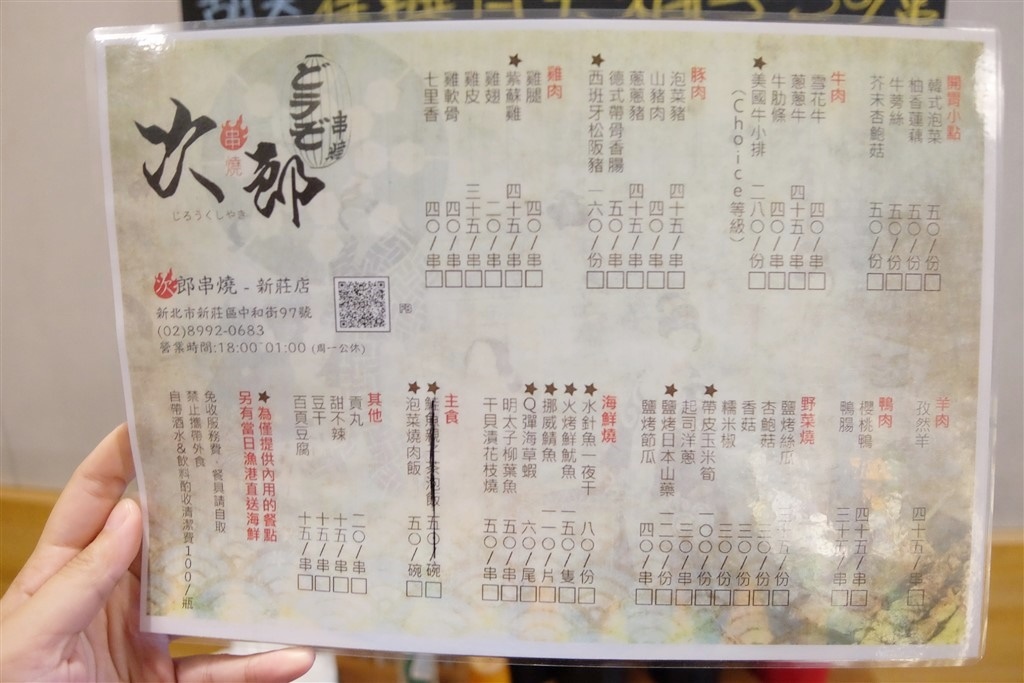 開胃小點
韓式泡菜 五〇/份
柚香蓮藕 五〇/份
牛蒡絲 五〇/份
芥末杏鮑菇 五〇/份
牛肉
雪花牛 四〇/串
蔥蔥牛 四十五/串
牛肋條 四〇/串
★美國牛小排 二八〇/份
(Choice等級)
豚肉
泡菜豬 四十五/串
山豬肉 四〇/串
蔥蔥豬 四十五/串
德式帶骨香腸 五〇/串
★西班牙松阪豬 一六〇/份
雞肉
雞腿 四〇/串
★紫蘇雞 四十五/串
雞翅 二〇/串
雞皮 三十五/串
雞軟骨 四〇/串
七里香 四〇/串
どうぞ
串燒
次郎
串燒
じろうくしやき
次郎串燒 - 新莊店
新北市新莊區中和街97號
(02)8992-0683
營業時間:18:00~01:00 (周一公休)
FB
羊肉
孜然羊 四十五/串
鴨肉
櫻桃鴨 四十五/串
鴨腸 三十五/串
野菜燒
鹽烤絲瓜
杏鮑菇
香菇
糯米椒
★帶皮玉米筍 一〇〇/份
起司洋蔥
★鹽烤日本山藥
鹽烤節瓜 四〇/串
海鮮燒
★水針魚一夜干 八〇/份
★火烤鮮魷魚 一五〇/隻
★挪威鯖魚 一一〇/片
★Q彈海草蝦 六〇/尾
明太子柳葉魚 五〇/串
干貝漬花枝燒 五〇/串
主食
五〇/碗
★泡菜燒肉飯 五〇/碗
其他
貢丸 二〇/串
甜不辣 十五/串
豆干 十五/串
百頁豆腐 十五/串
★為僅提供內用的餐點
另有當日漁港直送海鮮
免收服務費，餐具請自取
禁止攜帶外食
自帶酒水&飲料酌收清潔費100/瓶